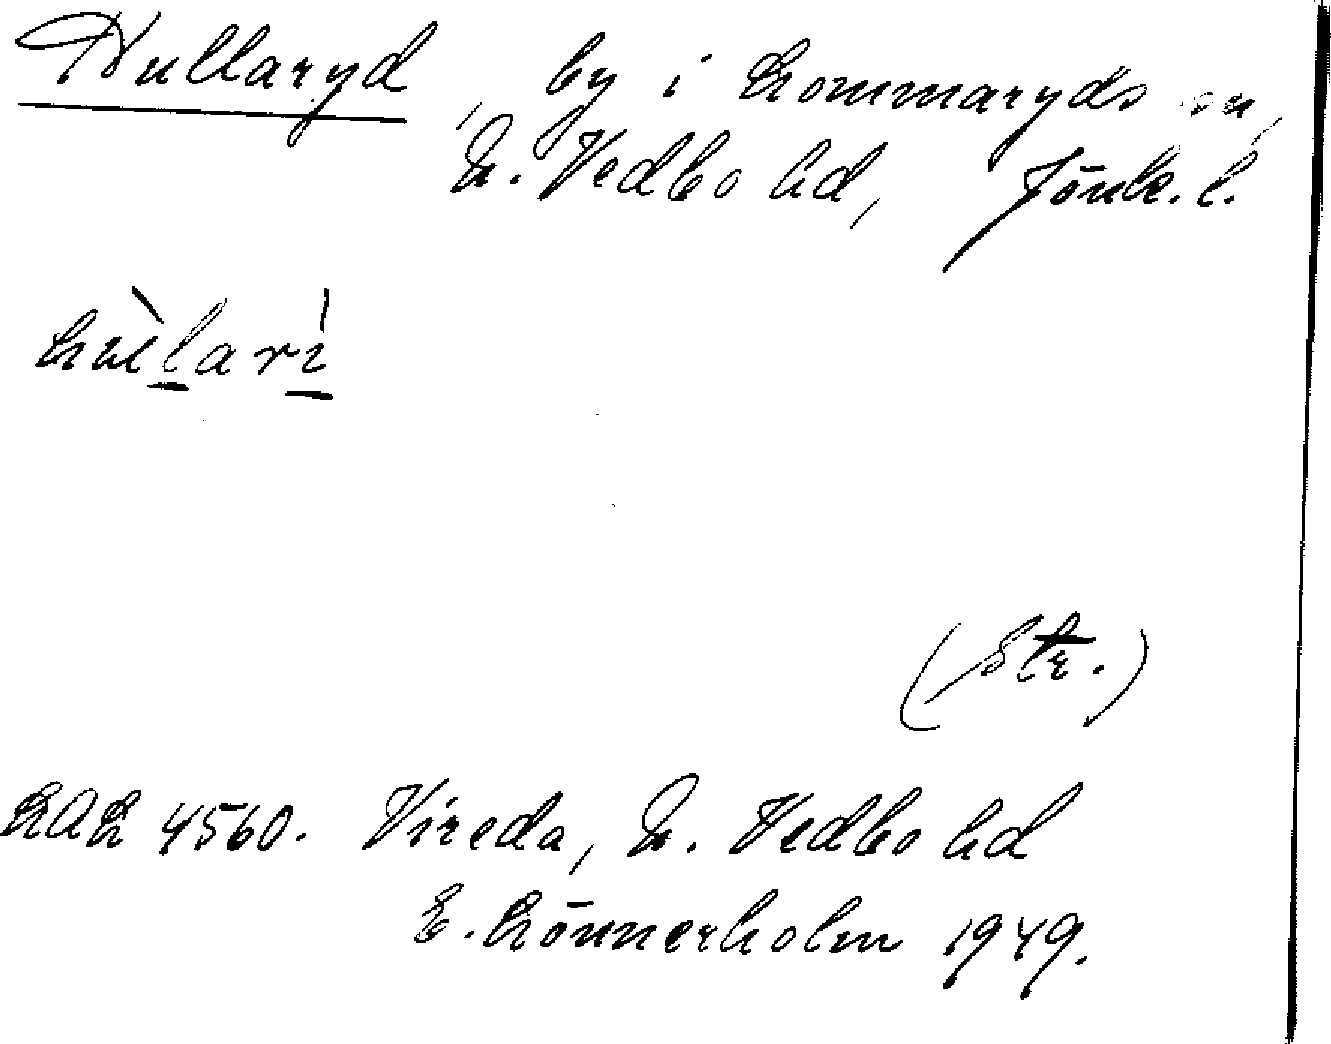 Hullaryd, by i Lommaryds sn,
N. Vedbo hd, Jönk. l.
hùlarì
LAL 4560. Vireda, N. Vedbo hd
E. Lönnerholm 1949.